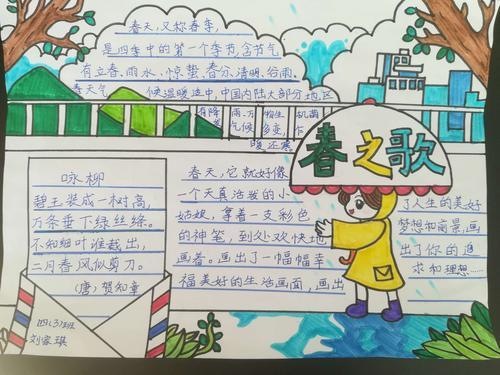 春天,又称春季,
是四季中的第一个季节,含节气
有立春、雨水、惊蛰、春分、清明、谷雨。
春天气候温暖适中,中国内陆大部分地区
有降雨、万物生机萌
气候多变,乍
暖还寒
春之歌
咏柳
碧玉装成一树高,
万条垂下绿丝绦。
不知细叶谁裁出,
二月春风似剪刀。
(唐)贺知章
四(3)班
刘家琪
春天,它就好像
一个天真活泼的小
姑娘,拿着一支彩色
的神笔,到处欢快地
画着。画出了一幅幅幸
福美好的生活画面,画出
了人生的美好
梦想和前景,画
出了你的追
求和理想……